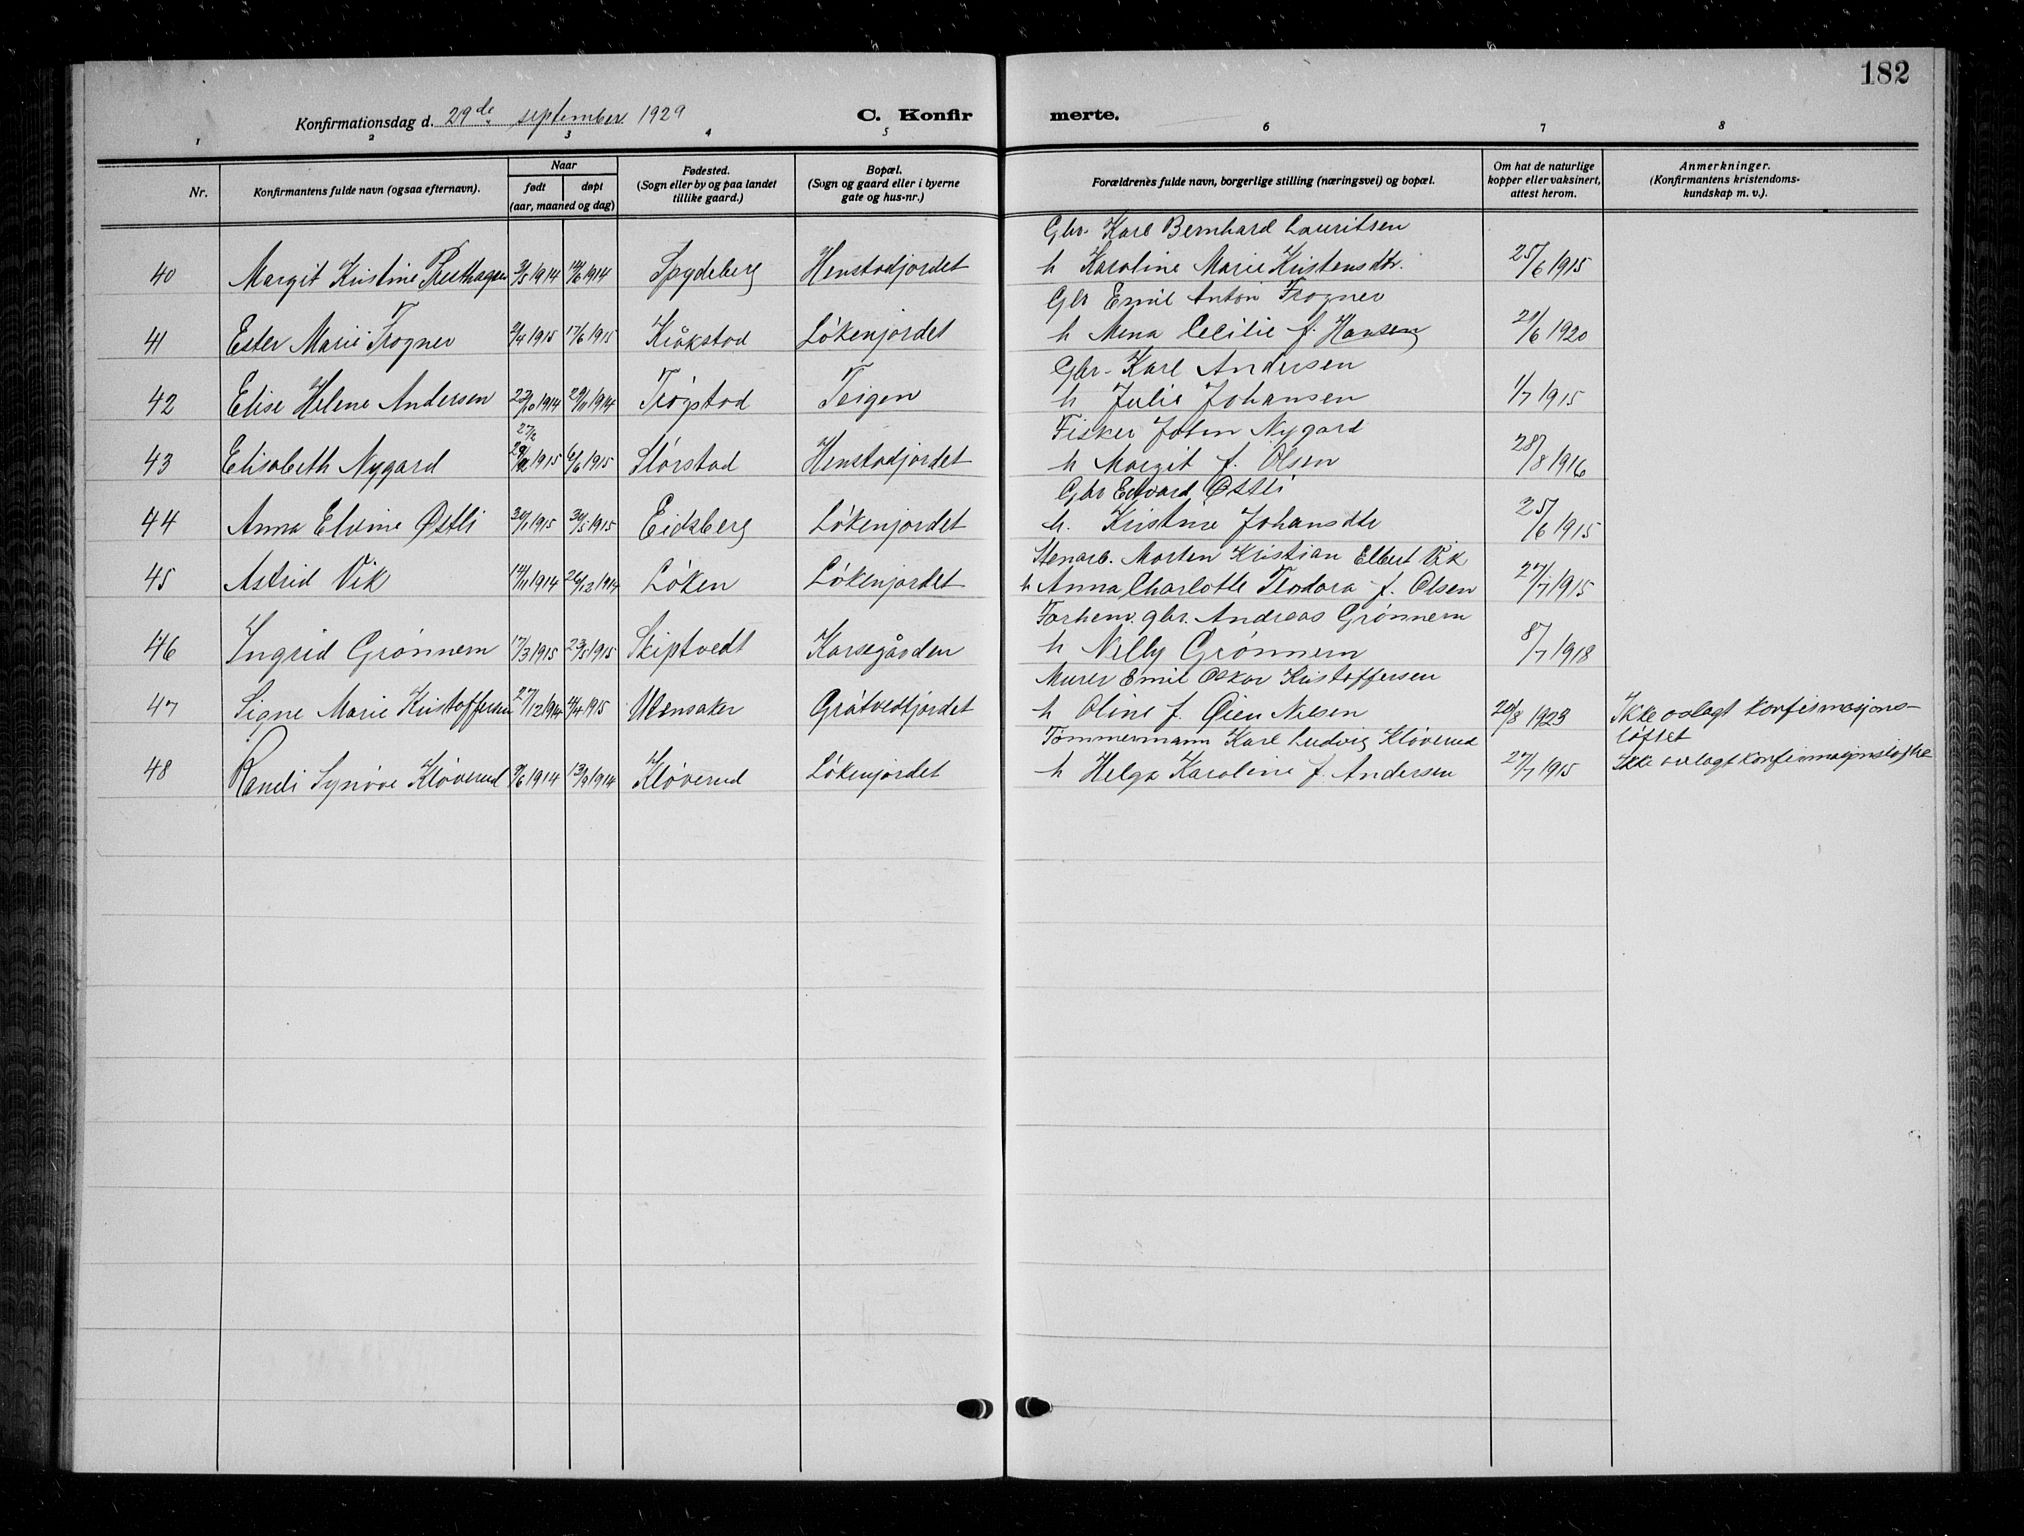 182
Konfirmationsdag d. 29de september 1929
C. Konfir merte.
1 2 3 4 5 6 7 8
Nr.
Konfirmantens fulde navn (ogsaa efternavn).
Naar
født døpt
(aar, maaned og dag)
Fødested.
(Sogn eller by og paa landet
tillike gaard.)
Bopæl.
(Sogn og gaard eller i byerne
gate og hus-nr.)
Forældrenes fulde navn, borgerlige stilling (næringsvei) og bopæl.
Om hat de naturlige
kopper eller vaksinert,
attest herom.
Anmerkninger.
(Konfirmantens kristendoms-
kundskap m. v.).
Gbr. Karl Bernhard Lauritsen
40 Margit Kristine 1914 1914 Spydeberg Henstadjordet h Karoline Marie Kristensdtr. 25/6 1915
Gbr Emil Anton Frogner
41 Ester Marie Frogner 2/4 1915 17/6 1915 Kråkstad Løkenjordet h Mena Cecilie f. Hansen 21/6 1920
Gbr. Karl Andersen
42 Elise Helene Andersen 23/10 1914 29/11 1914 Trøgstad Teigen h Julie Johansen 1/7 1915
Fisker John Nygard
27/2
43 Elisabeth Nygard 1915 6/6 1915 Størstad Henstadjordet h Margit f. Olsen 28/8 1916
Gbr Edvard Østli
44 Anna Elvine Østli 30/1 1915 30/5 1915 Eidsberg Løkenjordet h. Kristine Johansdtr 25/6 1915
Stenarb. Morten Kristian Elbert Vik
45 Astrid Vik 14/11 1914 26/12 1914 Løken Løkenjordet h Anna Charlotte Teodora f. Olsen 27/7 1915
Forhenv. gbr. Andreas Grønnern
46 Ingrid Grønnern 17/3 1915 23/5 1915 Skiptvedt Karsegården h Nelly Grønnern 8/7 1918
Murer Emil Oskar Kristoffersen
47 Signe Marie Kristoffersen 27/12 1914 1915 Ullensaker Gråtvedtjordet h Oline f. Øien Nilsen 20/8 1923 Ikke avlagt konfirmasjons-
løftet
Tømmermann Karl Ludvig Kløverud
48 Randi Synøve Kløverud 9/6 1914 13/9 1914 Kløverud Løkenjordet h Helga Karoline f. Andersen 27/7 1915 Ikke avlagt konfirmasjonsløfte